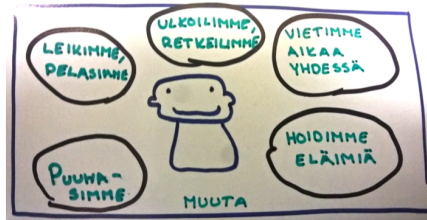 LEIKIMME,
PELASIMME
ULKOILIMME,
RETKEILIMME
VIETIMME
AIKAA
YHDESSÄ
PUUHA-
SIMME
HOIDIMME
ELÄIMIÄ
MUUTA